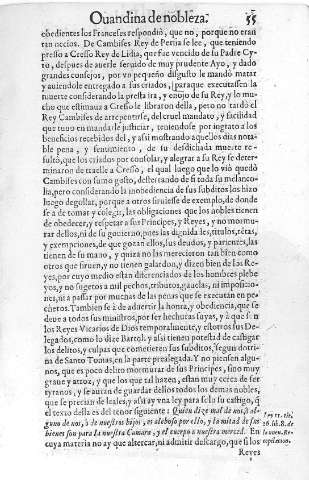 Guardina de nobleza. 55
obedientes los Franceses respondiò, que no, porque no eran
tan necios. De Cambises Rey de Persia se lee, que teniendo
presso a Cresso Rey de Lidia, que fue vencido de su Padre Cy-
ro, despues de auerle seruido de muy prudente Ayo, y dado
grandes consejos, por vn pequeño disgusto le mandò matar
y auiendole entregado a sus criados, paraque executassen la
muerte considerando la presta ira, y enojo de su Rey, y lo mu-
cho que estimaua a Cresso le libraron della, pero no tardò el
Rey Cambises de arrepentirse, del cruel mandato, y facilidad
que tuuo en mandarle justiciar, teniendose por ingrato a los
beneficios recebidos del, y assi mostrando aquellos dias nota-
ble pena, y sentimiento, de su desdichada muerte re-
sultò, que los criados por consolar, y alegrar a su Rey se deter-
minaron de traelle a Cresso, el qual luego que lo viò quedò
Cambises con sumo gozo, desterrando de si toda su melanco-
lia, pero considerando la inobediencia de sus subditos los hizo
luego degollar, porque a otros siruiesse de exemplo, de donde
se a de tomar y colegir, las obligaciones que los nobles tienen
de obedecer, y respetar a sus Principes, y Reyes, y no mormu-
rar dellos, ni de su gouierno, pues las dignidades, titulos, retas,
y exempciones, de que gozan ellos, sus deudos, y parientes, las
tienen de su mano, y quiza no las merecieron tan bien como
otros que siruen, y no tienen galardon, y dizen bien de los Re-
yes, por cuyo medio estan diferenciados de los hombres plebe-
yos, y no sugetos a mil pechos, tributos, gauelas, ni imposicio-
nes, ni a passar por muchas de las penas que se executan en pe-
cheros. Tambien se à de aduertir la honra, y obediencia, que se
deue a todos sus ministros, por ser hechuras suyas, y à que son
los Reyes Vicarios de Dios temporalmente, y estotros sus De-
legados, como lo dize Bartol. y assi tienen potestad de castigar
los delitos, y culpas que cometieren sus subditos, segun dotri-
na de Santo Tomas, en la parte prealegada. Y no piensen algu-
nos, que es poco delito mormurar de sus Principes, sino muy
graue y atroz, y que los que tal hazen, estan muy cerca de ser
tyranos, y se auran de guardar dellos todos los demas nobles,
que se precian de leales, y assi ay vna ley sobre su castigo, q̃
el texto della es del tenor siguiente: Quien dize mal de nos, ò al-
guno de nos, ò de nuestros hijos, es aleboso por ello, y la mitad de sus
bienes son para la nuestra Camara, y el cuerpo a nuestra merced. En
cuya materia no ay que altercar, ni admitir descargo, que si los
Reyes